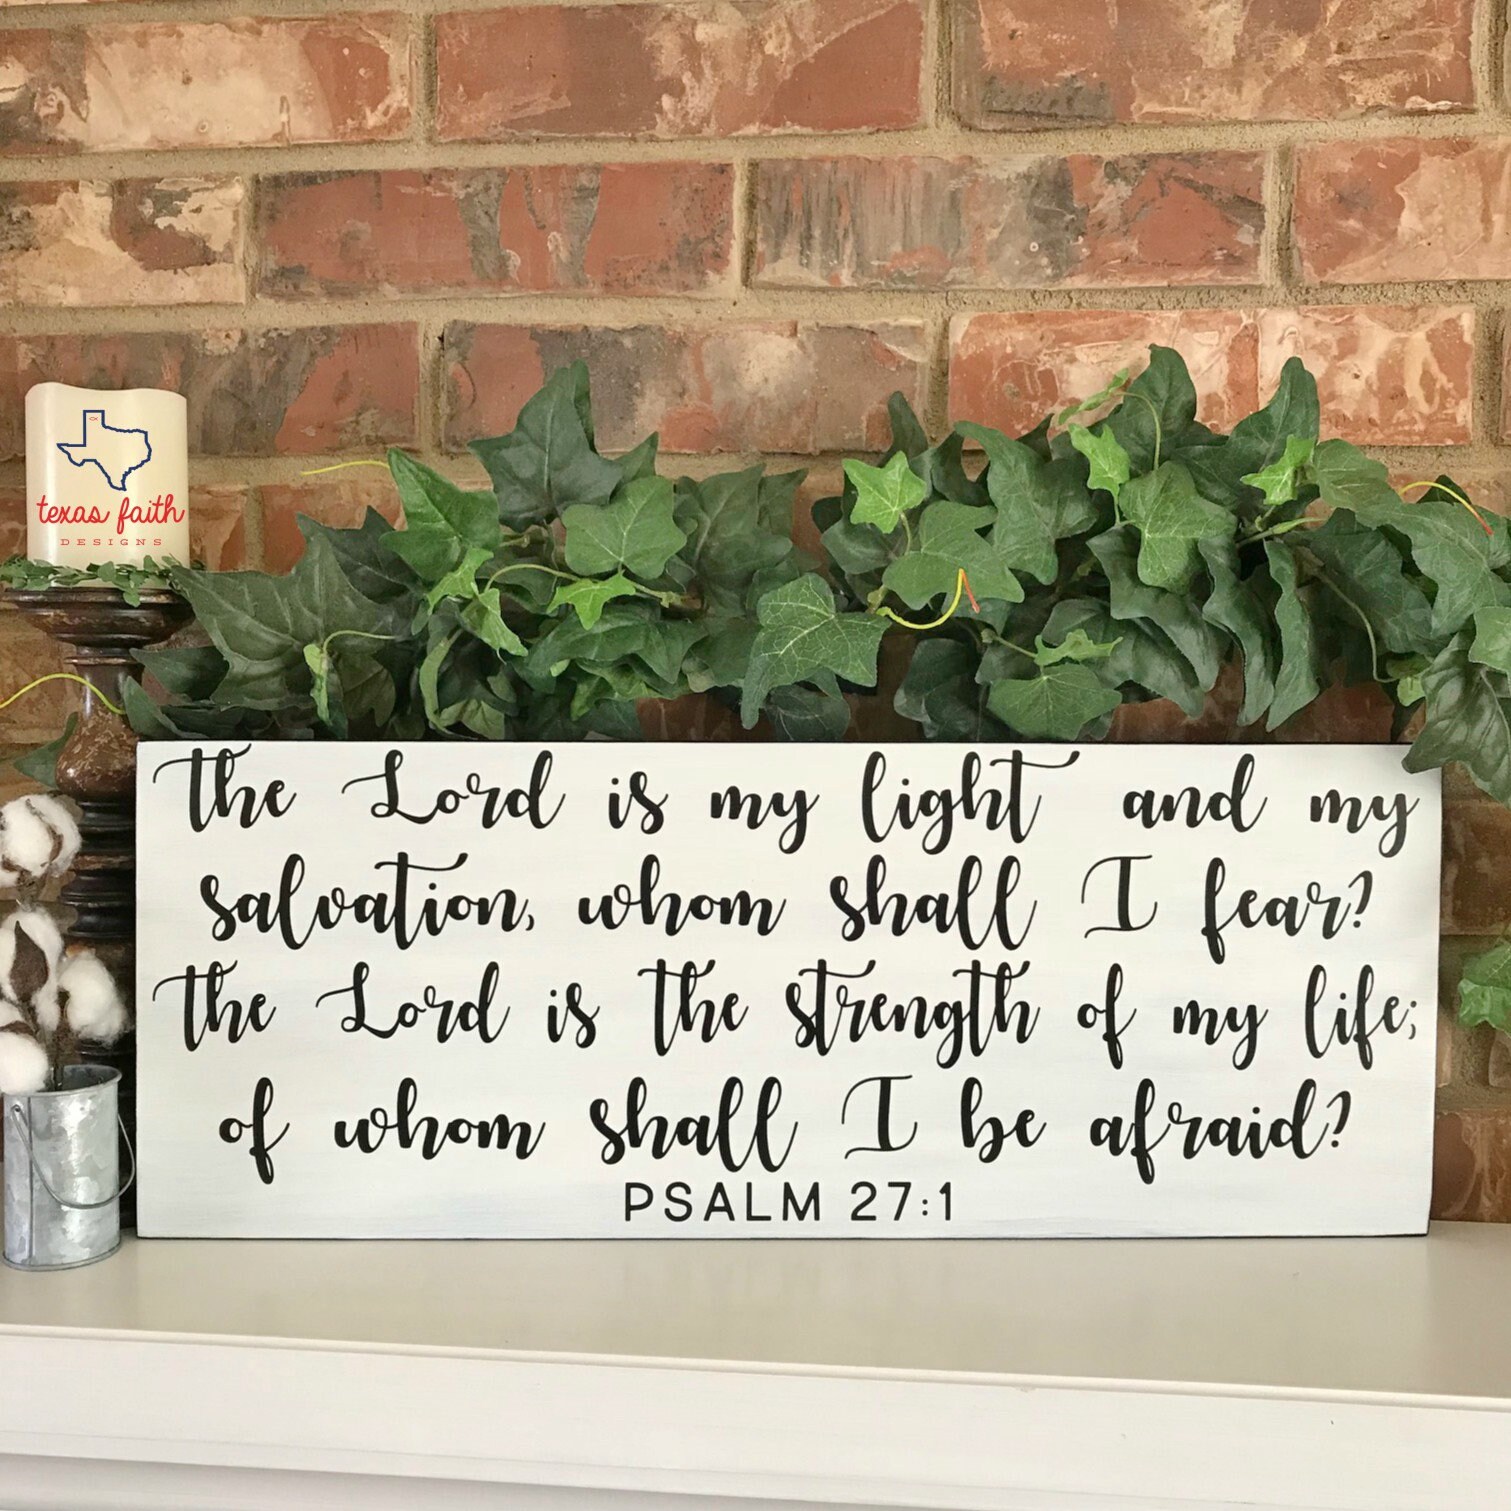 texas faith
DESIGNS
the Lord is my light and my
salvation, whom shall I fear?
the Lord is the strength of my life;
of whom shall I be afraid?
PSALM 27:1